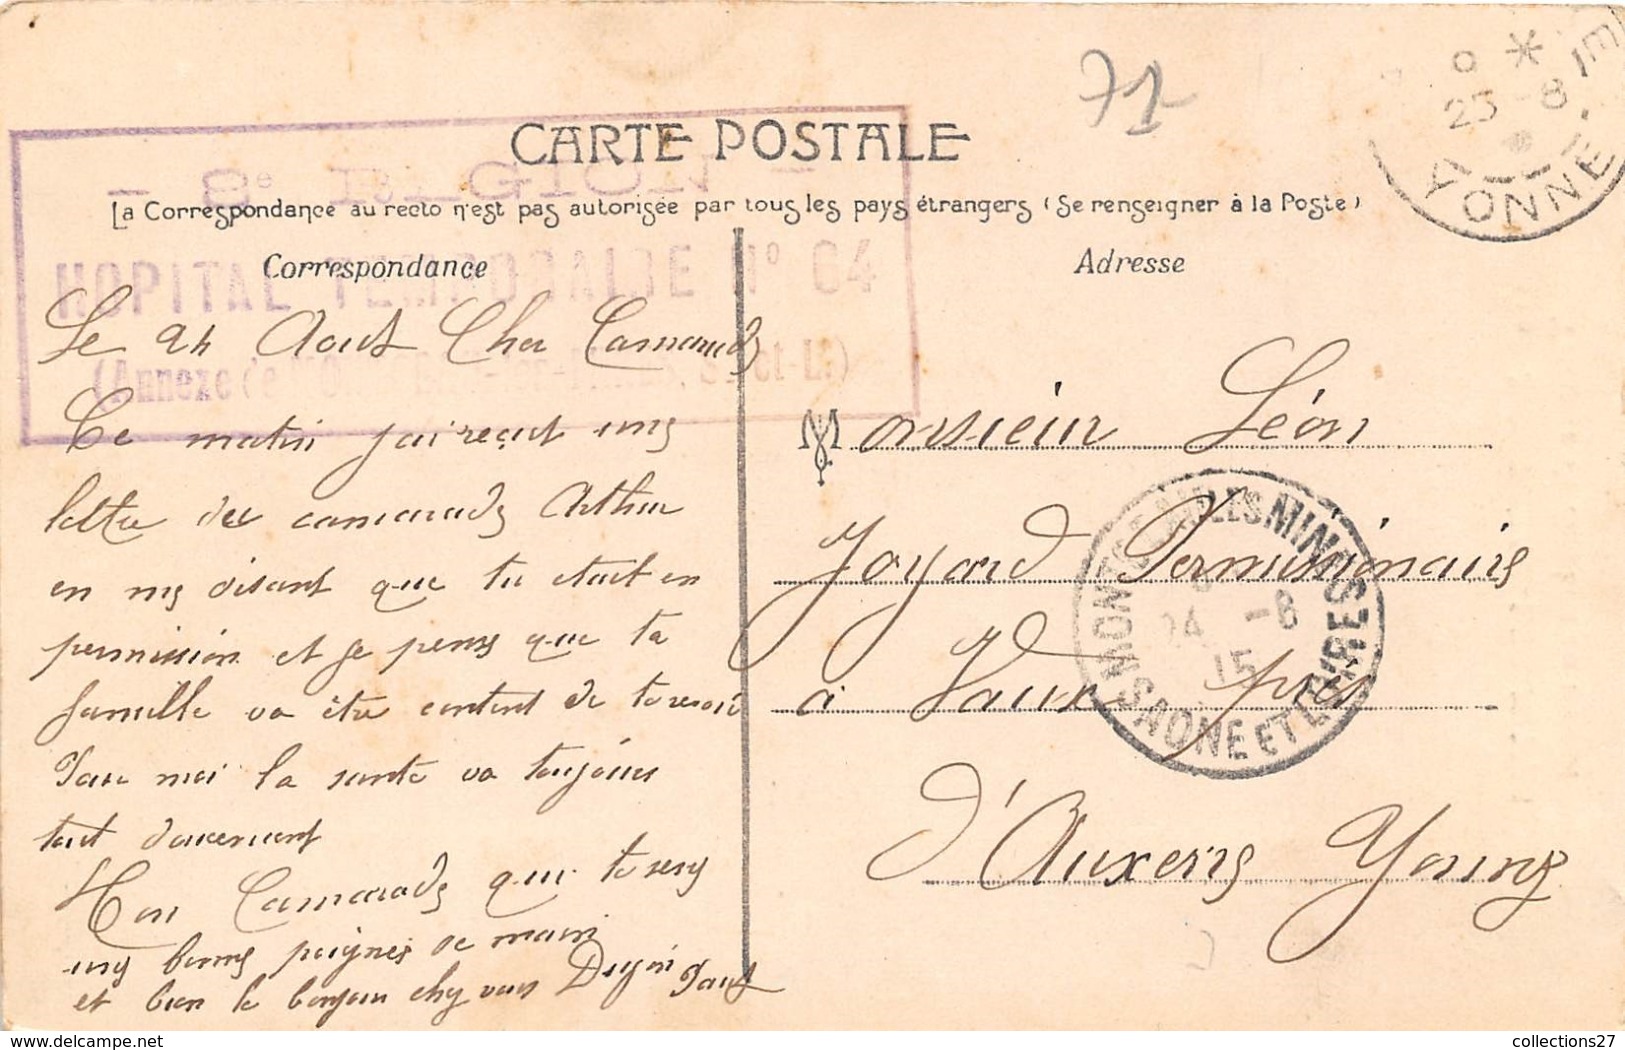 71
CARTE POSTALE
8e REGION
La Correspondance au recto n'est pas autorisée par tous les pays étrangers (Se renseigner à la Poste)
HOPITAL TEMPORAIRE N° 64
(Annexe de
S.-et-L.)
Correspondance
Le 24 Aout Cher Camarade
Ce matin j'ai reçut une
lettre du camarade Arthur
en me disant que tu etait en
permission et je pense que ta
famille va être content de te revoir
Pour moi la santé va toujours
tout doucement
Mon Camarade que te serre
une bonne poignée de main
et bien le bonjour chez vous
Paul
Adresse
Monsieur Léon
Joyard Permissionnaire
à Vaux près
d'Auxerre Yonne
MONTCEAU-LES-MINES
24 -8
15
SAONE ET LOIRE
25 -8
YONNE
collections27